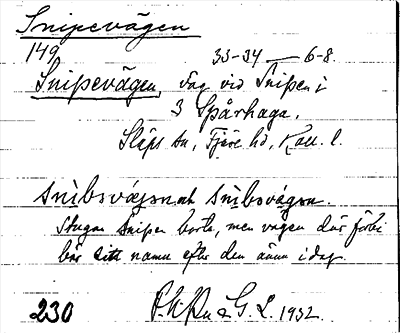 Snipevägen
149 33-34 — 6-8.
Snipevägen, väg vid Snipen i
3 Spårhaga.
Släps sn, Fjäre hd, Hall. l.
snìbsvǽgən och snìbsvágən.
Stugan Snipen borta, men vägen där förbi
bär sitt namn efter den ännu i dag.
230 & G. L. 1932.